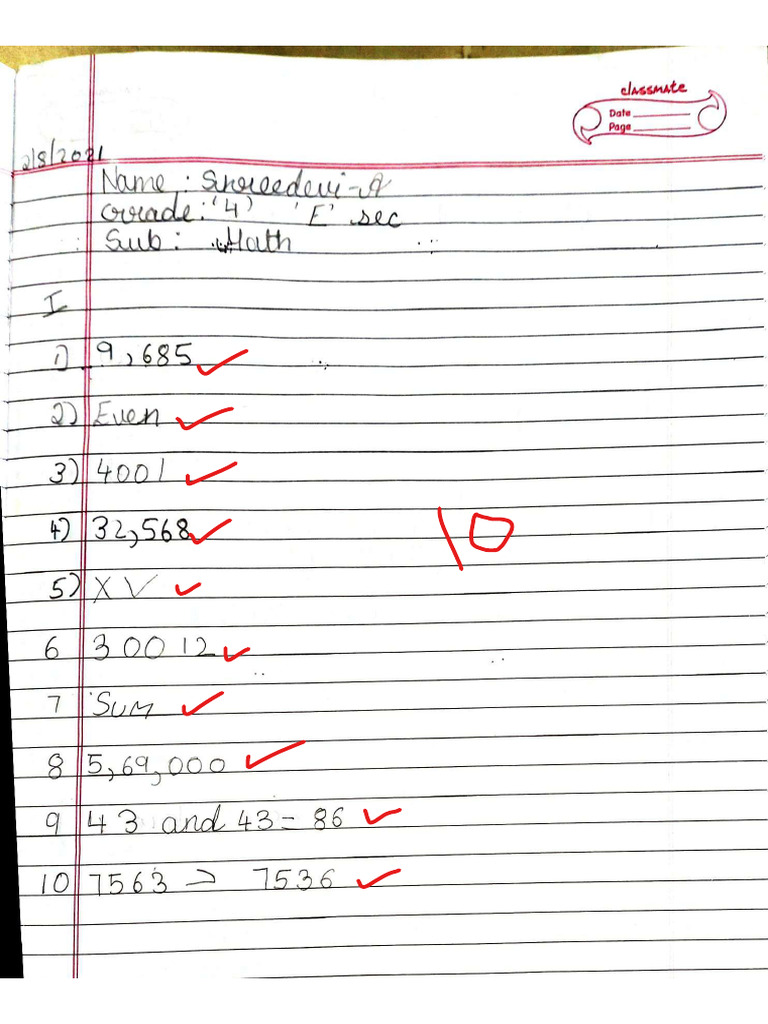 classmate
Date
Page
2/8/2021
Name : Shreedevi-A
Grade: '4' 'E' sec
Sub : Math
I
1) 9,685
2) Even
3) 4001
4) 32,568
5) XV
10
6 30012
7 Sum
8 5,69,000
9 43 and 43 = 86
10 7563 > 7536